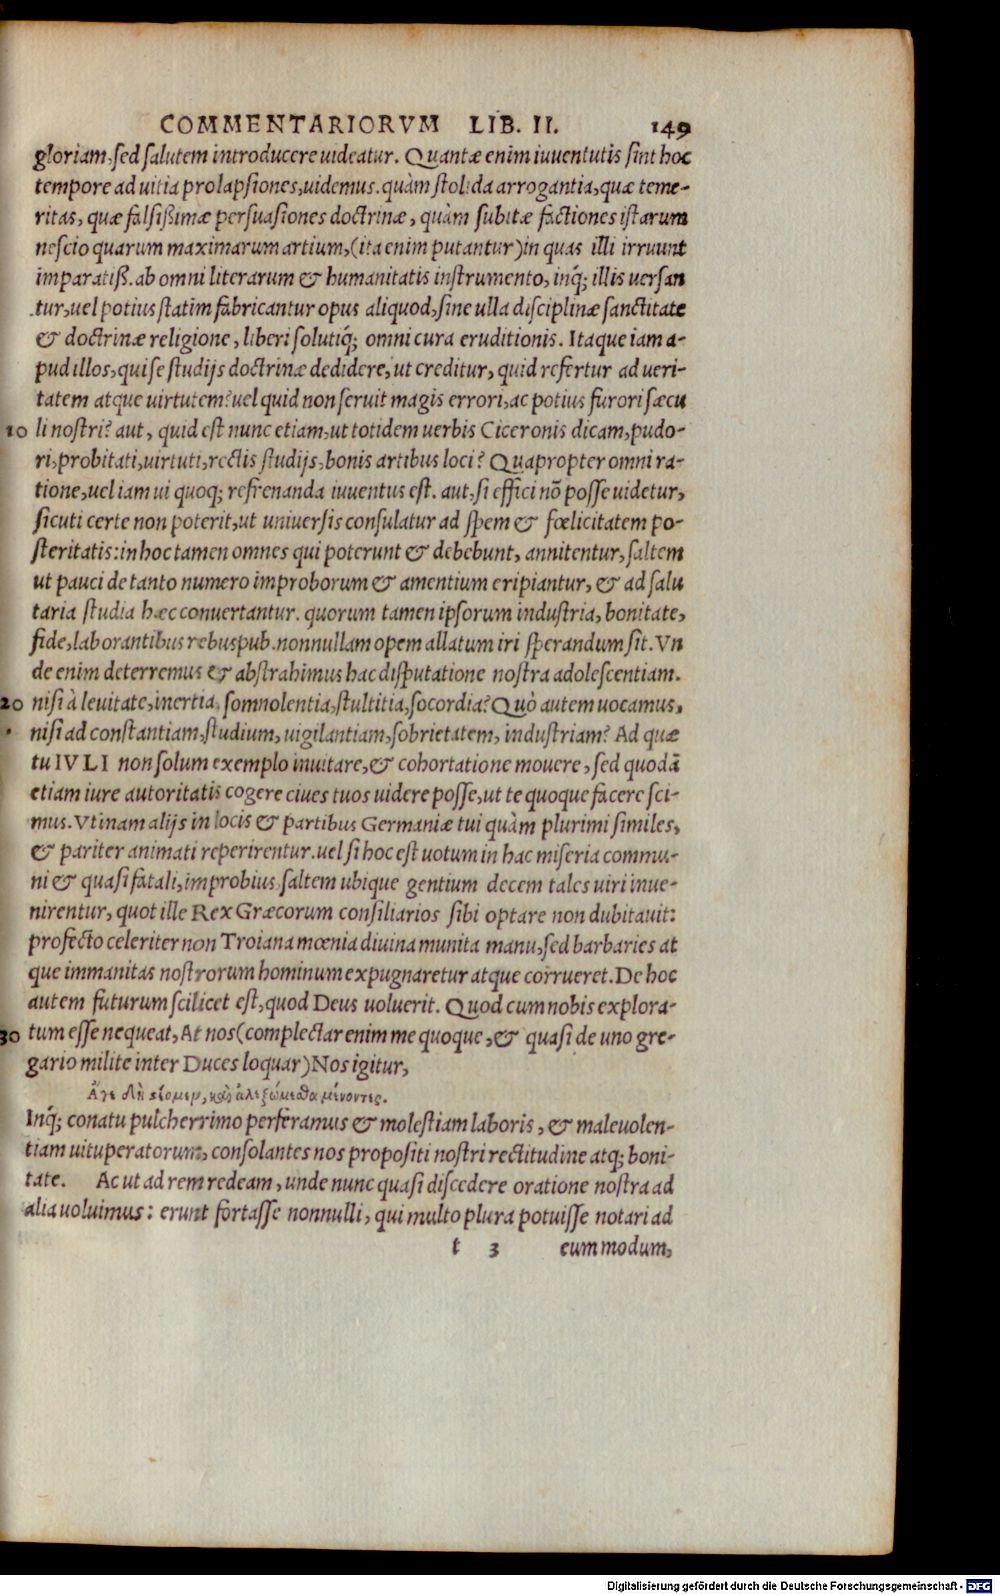 COMMENTARIORVM LIB. II. 149
gloriam, sed salutem introducere uideatur. Quantæ enim iuuentutis sint hoc
tempore ad uitia prolapsiones, uidemus. quàm stolida arrogantia, quæ teme-
ritas, quæ falsißimæ persuasiones doctrinæ, quàm subitæ factiones istarum
nescio quarum maximarum artium, (ita enim putantur) in quas illi irruunt
imparatiß. ab omni literarum & humanitatis instrumento, inq́; illis uersan
tur, uel potius statim fabricantur opus aliquod, sine ulla disciplinæ sanctitate
& doctrinæ religione, liberi solutiq́; omni cura eruditionis. Itaque iam a-
pud illos, qui se studijs doctrinæ dedidere, ut creditur, quid refertur ad ueri-
tatem atque uirtutem? uel quid non seruit magis errori, ac potius furori sæcu
10 li nostri? aut, quid est nunc etiam, ut totidem uerbis Ciceronis dicam, pudo-
ri, probitati, uirtuti, rectis studijs, bonis artibus loci? Quapropter omni ra-
tione, uel iam ui quoq; refrenanda iuuentus est. aut, si effici nõ posse uidetur,
sicuti certe non poterit, ut uniuersis consulatur ad spem & fœlicitatem po-
steritatis: in hoc tamen omnes qui poterunt & debebunt, annitentur, saltem
ut pauci de tanto numero improborum & amentium eripiantur, & ad salu
taria studia hæc conuertantur. quorum tamen ipsorum industria, bonitate,
fide, laborantibus rebus pub. nonnullam opem allatum iri sperandum sit. Vn
de enim deterremus & abstrahimus hac disputatione nostra adolescentiam.
20 nisi à leuitate, inertia, somnolentia, stultitia, socordia? Quò autem uocamus,
nisi ad constantiam, studium, uigilantiam, sobrietatem, industriam? Ad quæ
tu IVLI non solum exemplo inuitare, & cohortatione mouere, sed quodã
etiam iure autoritatis cogere ciues tuos uidere posse, ut te quoque facere sci-
mus. Vtinam alijs in locis & partibus Germaniæ tui quàm plurimi similes,
& pariter animati reperirentur. uel si hoc est uotum in hac miseria commu-
ni & quasi fatali, improbius, saltem ubique gentium decem tales uiri inue-
nirentur, quot ille Rex Græcorum consiliarios sibi optare non dubitauit:
profecto celeriter non Troiana mœnia diuina munita manu, sed barbaries at
que immanitas nostrorum hominum expugnaretur atque corrueret. De hoc
autem futurum scilicet est, quod Deus uoluerit. Quod cum nobis explora-
30 tum esse nequeat, At nos (complectar enim me quoque, & quasi de uno gre-
gario milite inter Duces loquar) Nos igitur,
Ἄγε δὴ στέομεν, καὶ ἀλεξώμεθα μένοντες.
Inq́; conatu pulcherrimo perferamus & molestiam laboris, & maleuolen-
tiam uituperatorum, consolantes nos propositi nostri rectitudine atq; boni-
tate. Ac ut ad rem redeam, unde nunc quasi discedere oratione nostra ad
alia uoluimus: erunt fortasse nonnulli, qui multo plura potuisse notari ad
t 3 eum modum,
Digitalisierung gefördert durch die Deutsche Forschungsgemeinschaft - DFG